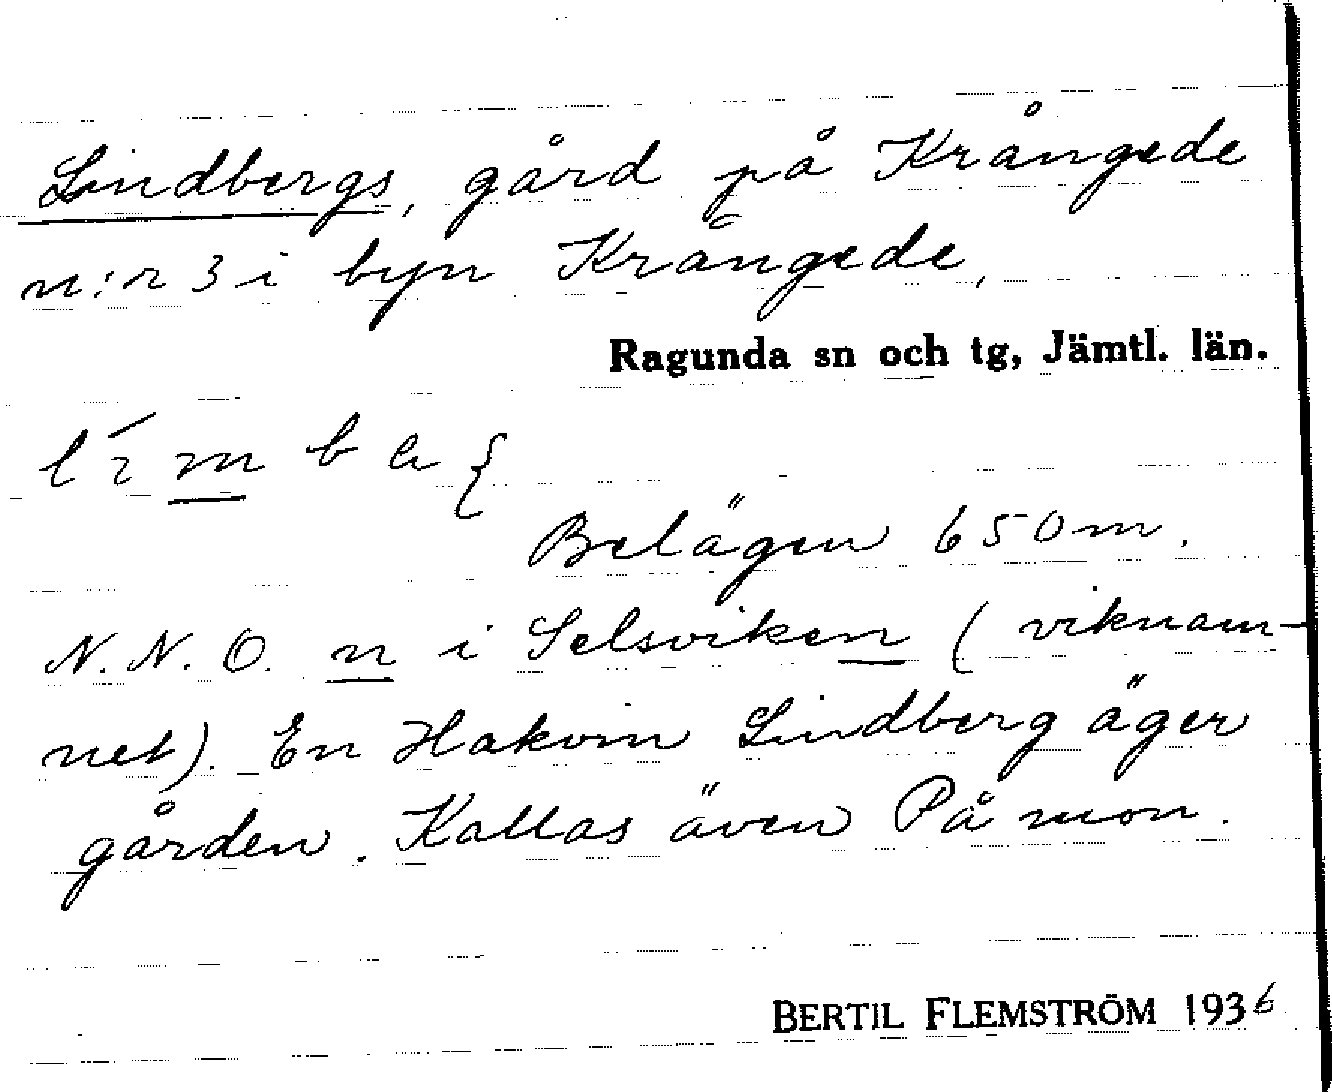 Lindbergs, gård på Krångede
n:r 3 i byn Krångede,
Ragunda sn och tg, Jämtl. län.
Belägen 650 m.
N.N.O. n i Selsviken (viknam-
net). En Hakvin Lindberg äger
gården. Kallas även På mon.
BERTIL FLEMSTRÖM 1936